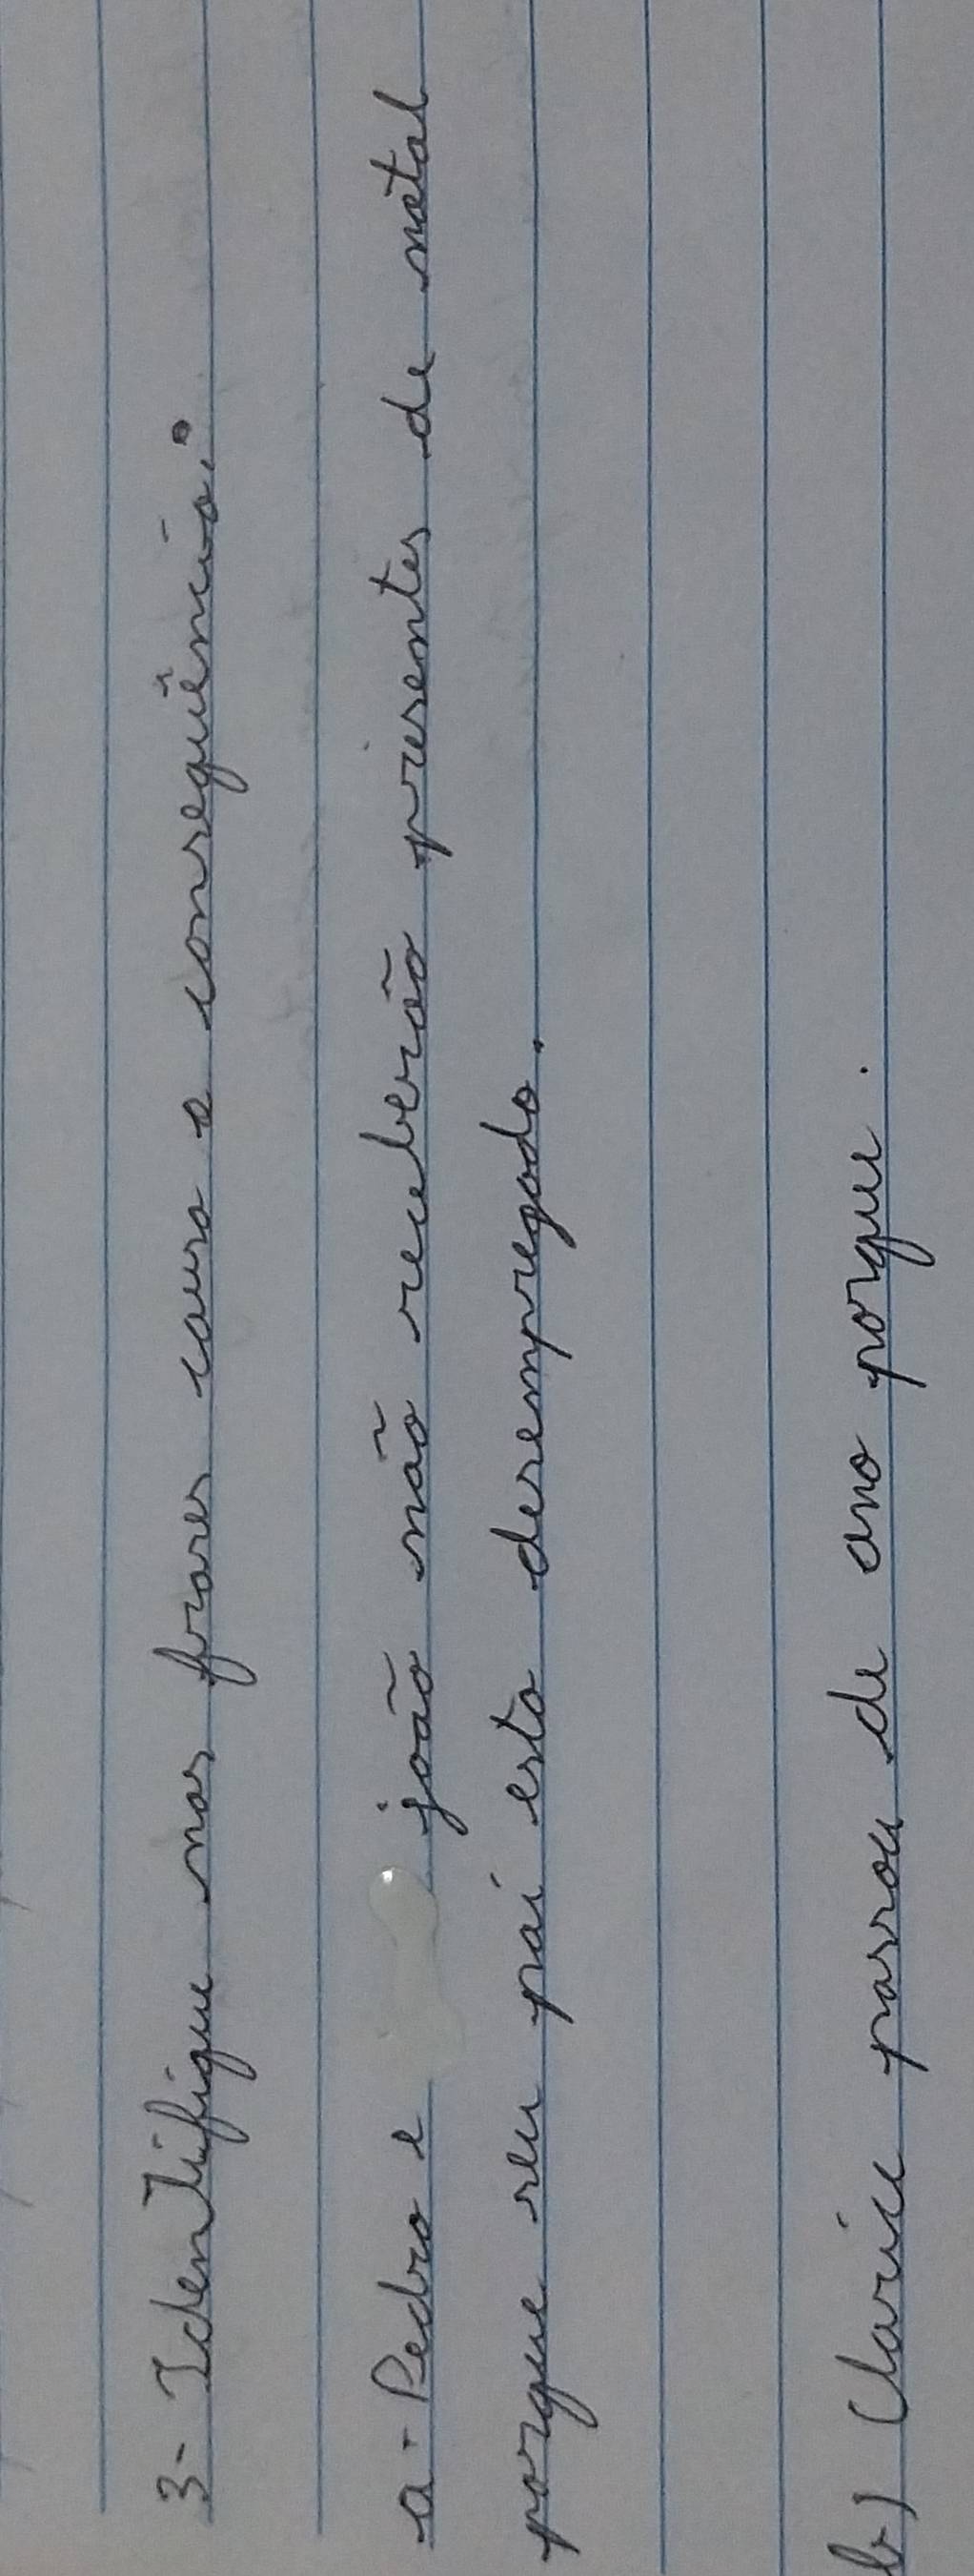 3- Identifique nas frases causa e consequência:
a - Pedro e joão não receberão presentes de natal
porque seu pai esta desempregado.
b) Clarice passou de ano porque.